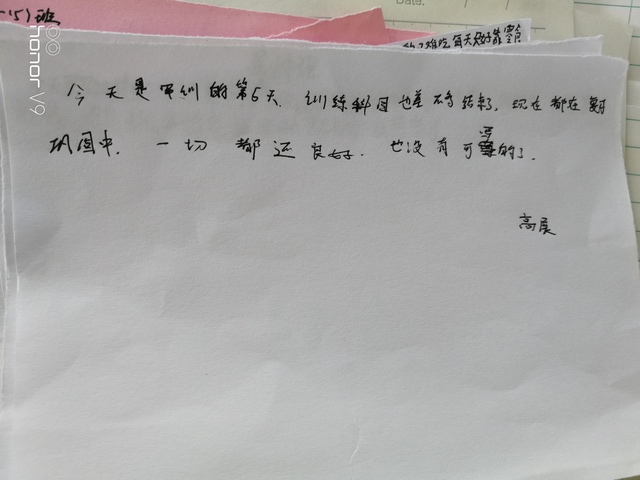 15)班
每天只好靠零
今天是军训的第5天, 训练科目也差不多结束了, 现在都在复习
巩固中. 一切都还良好. 也没有可写的了.
高展
honor V9
Date: